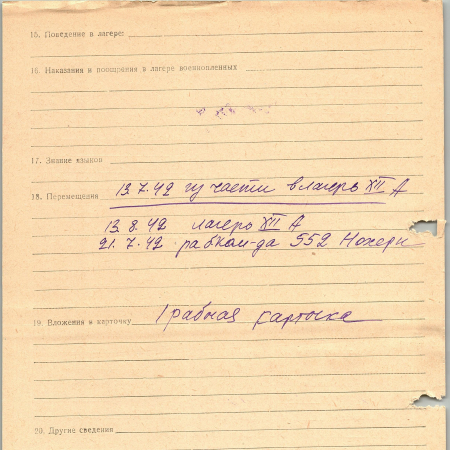 15. Поведение в лагере:
16. Наказания и поощрения в лагере военнопленных
17. Знание языков
18. Перемещения 13.7.42 из части в лагерь XII А
13.8.42 лагерь XII А
21.7.42 рабком-да 552
19. Вложения в карточку 1 рабочая карточка
20. Другие сведения